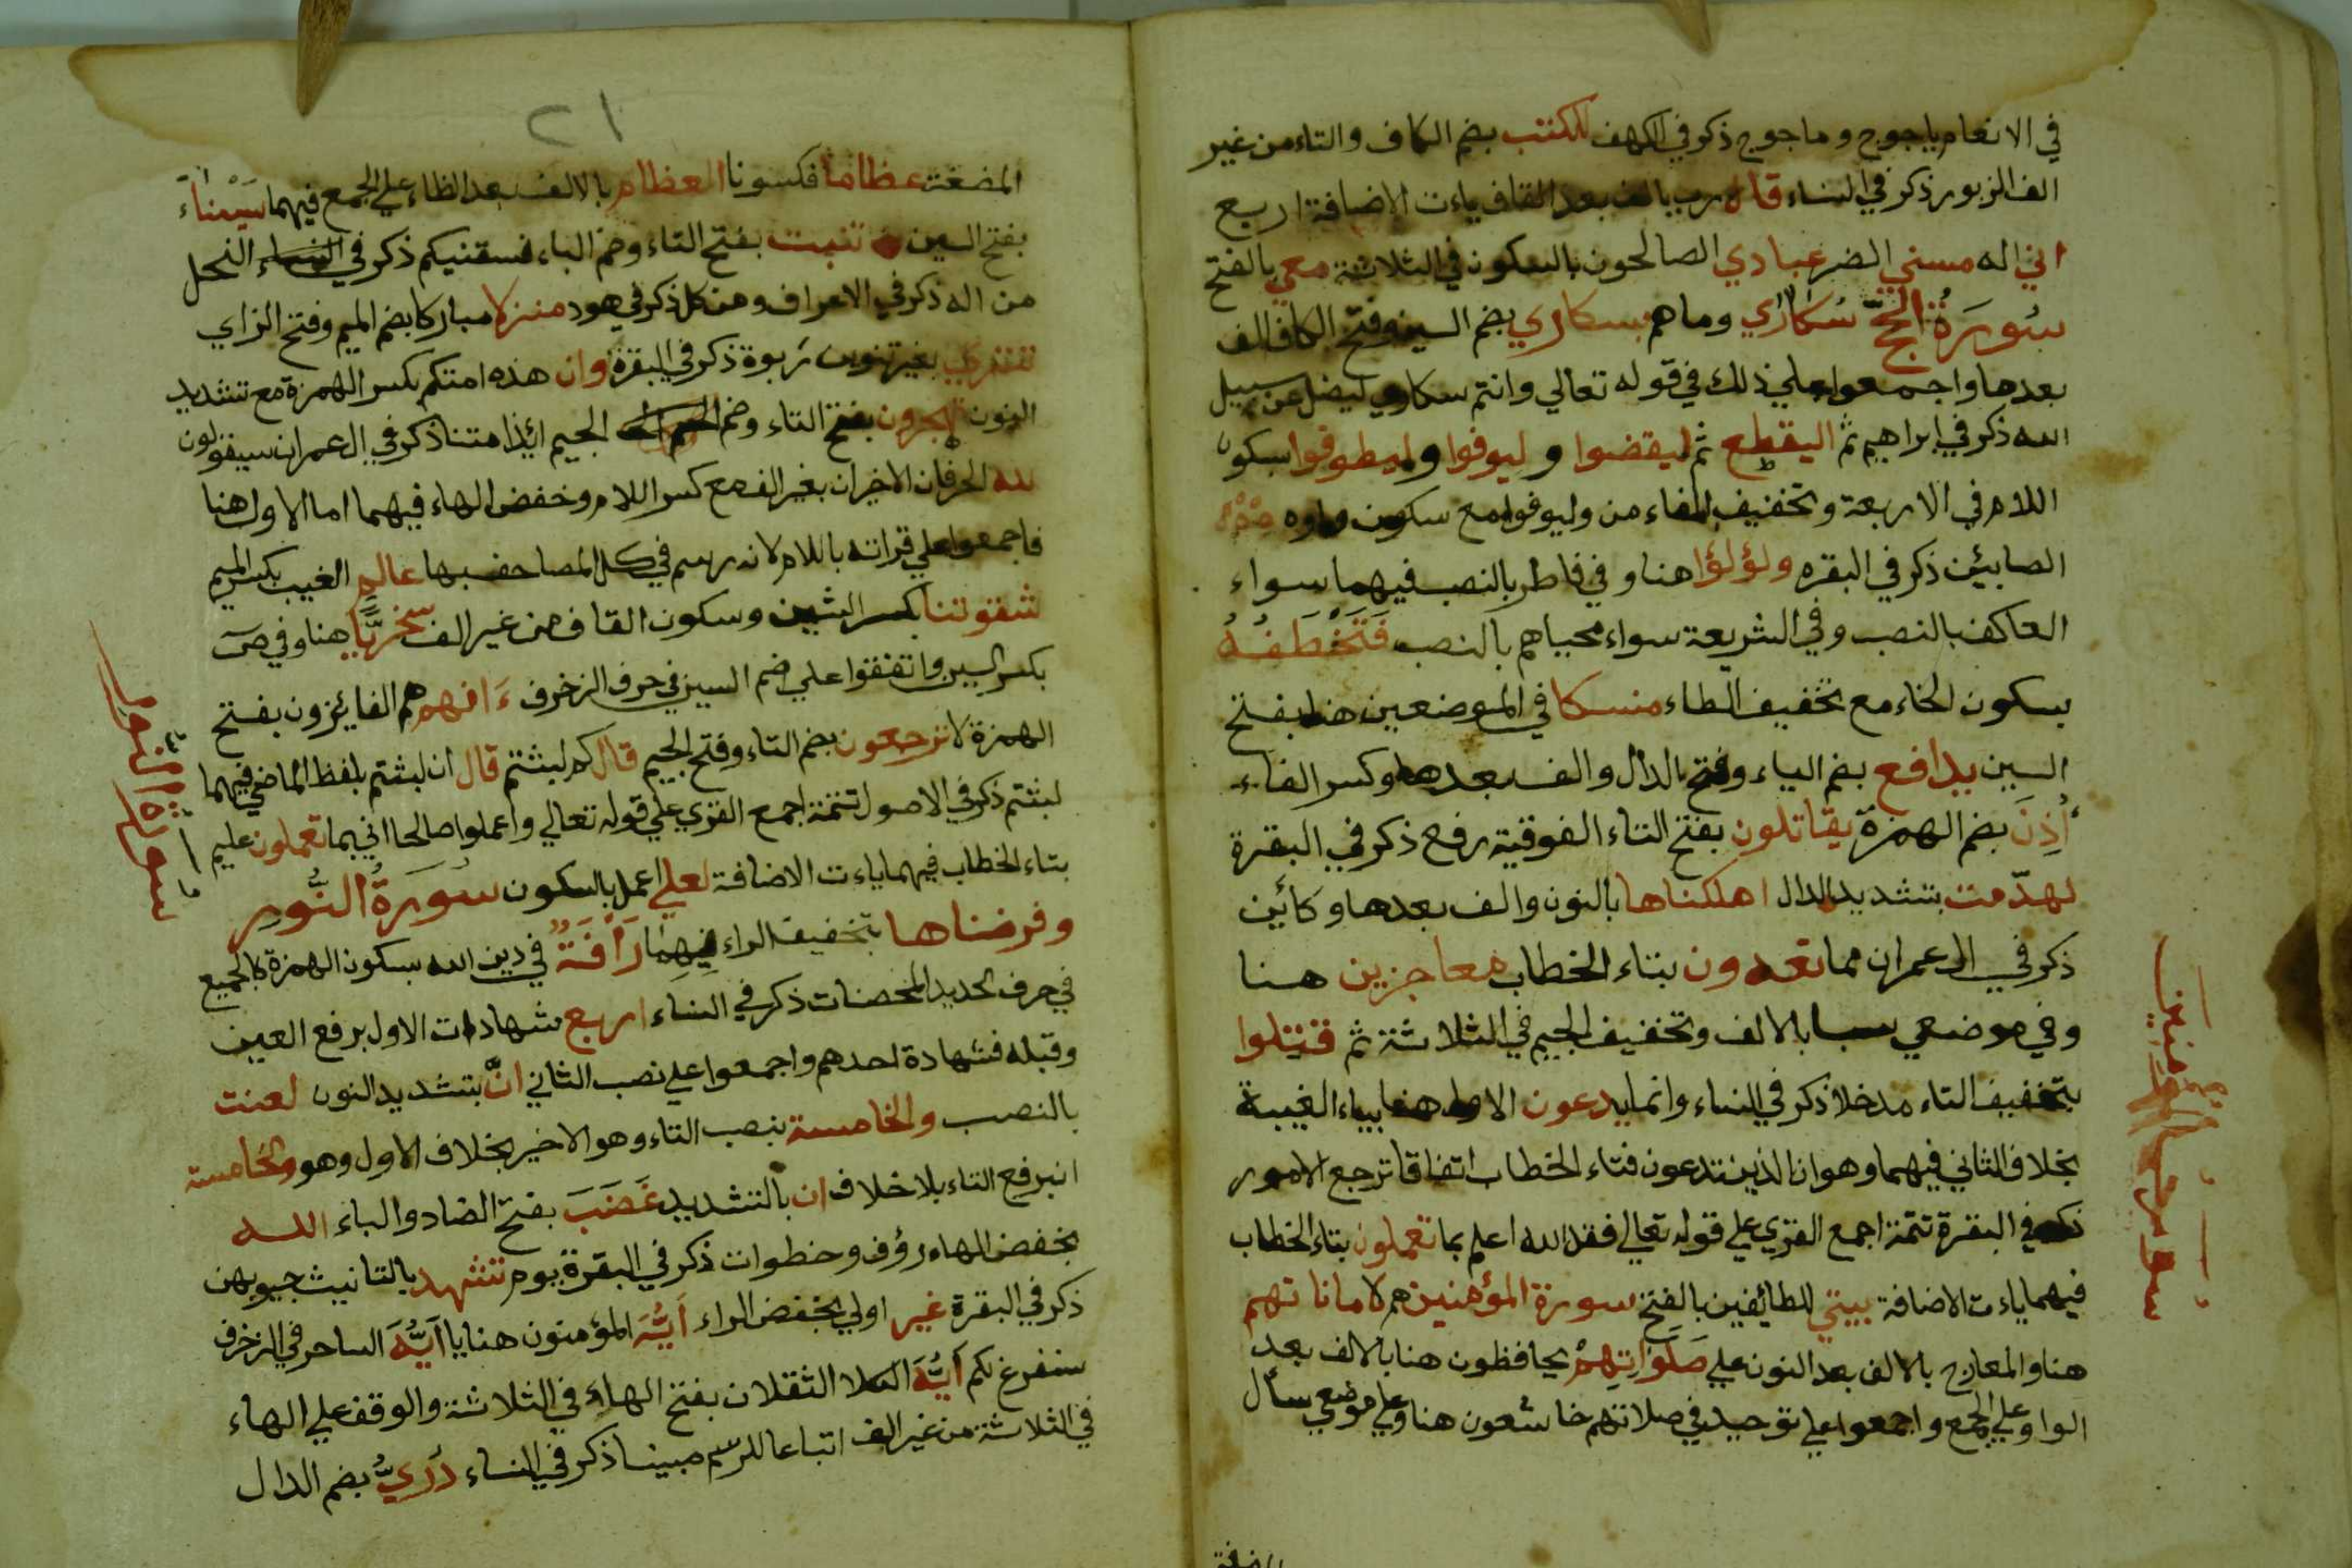 في الانعام ياجوج وماجوج ذكر في الكهف للكتب بضم الكاف والتاء من غير
الف الزبور ذكر في النساء قال رب بالف بعد القاف ياءت الاضافة اربع
اني اله مسني الضر عبادي الصالحون بالسكون في الثلاثة معي بالفتح
سُورَةُ الحَجّ سُكَارٰي وما هم بسكاري بضم السين وفتح الكاف الف
بعدها واجمعوا علي ذلك في قوله تعالي وانتم سكاري ليضل عن سبيل
الله ذكر في ابراهيم ثم اليقطع ثم ليقضوا و ليوفوا وليطوفوا بسكون
اللام في الاربعة وتخفيف الفاء من وليوفوا مع سكون واوه
الصابئين ذكر في البقره ولؤلؤا هنا و في فاطر بالنصب فيهما سواء
العاكف بالنصب وفي الشريعة سواء محياهم بالنصب فَتَخْطَفُهُ
بسكون الخاء مع تخفيف الطاء منسكا في الموضعين هنا بفتح
السين يدافع بضم الياء وفتح الدال والف بعدها وكسر الفاء
أُذِنَ بضم الهمزة يقاتلون بفتح التاء الفوقية رفع ذكر في البقرة
لهدّمت بتشديد الدال اهلكناها بالنون والف بعدها وكأين
ذكر في ال عمران مما تعدون بتاء الخطاب معاجزين هنا
وفي موضعي سبا بالالف وتخفيف الجيم في الثلاثة ثم قتِلوا
بتخفيف التاء مدخلا ذكر في النساء وانما يدعون الاول هنا بياء الغيبة
بخلاف الثاني فيهما وهو ان الذين تدعون فتاء الخطاب اتفاقا ترجع الامور
ذكر في البقرة تتمة اجمع القري علي قوله تعالي فقل الله اعلم بما تعملون بتاء الخطاب
فيهما ياءت الاضافة بيتي للطائفين بالفتح سورة المؤمنين هم لاماناتهم
هنا والمعارج بالالف بعد النون علي صَلَوَاتِهِمْ يحافظون هنا بالالف بعد
الواو علي الجمع واجمعوا علي توحيد في صلاتهم خاشعون هنا وعلي موضعي سأل
سورة المؤمنين
٢١
المضغت عظاما فكسونا العظام بالالف بعد الظاء علي الجمع فيهما سَيْنَاء
بفتح السين تنبت بفتح التاء وضم الباء نسقيكم ذكر في النساء النحل
من اله ذكر في الاعراف ومن كل ذكر في هود منزلا مباركا بضم الميم وفتح الزاي
تتري بغير تنوين ربوة ذكر في البقرة وان هذه امتكم بكسر الهمزة مع تشديد
النون تهجرون بفتح التاء وضم الجيم ائذا متنا ذكر في ال عمران سيقولون
لله الحرفان الاخيران بغير الف مع كسر اللام وخفض الهاء فيهما اما الاول هنا
فاجمعوا علي قراته باللام لانه رسم في كل المصاحف بها عالم الغيب بكسر الميم
شقوتنا بكسر الشين وسكون القاف من غير الف سخريًّا هنا وفي ص
بكسر السين واتفقوا علي ضم السين في حرف الزخرف ءَانهم هم الفايزون بفتح
الهمزة لا ترجعون بضم التاء وفتح الجيم قال كم لبثتم قال ان لبثتم بلفظ الماضي فيهما
لبثتم ذكر في الاصول تتمة اجمع القري علي قوله تعالي واعملوا صالحا اني بما تعملون عليم
بتاء الخطاب فيهما ياءت الاضافة لعلي اعمل بالسكون سُورَةُ النُّور
وفرضناها بتخفيف الراء فيهما رَأْفَةٌ في دين الله بسكون الهمزة كالجميع
في حرف الحديد المحصنات ذكر في النساء اربع شهادات الاول برفع العين
وقبله فشهادة احدهم واجمعوا علي نصب الثاني انَّ بتشديد النون لعنت
بالنصب والخامسة بنصب التاء وهو الاخير بخلاف الاول وهو والخامسة
انبرفع التاء بلا خلاف ان بالتشديد غَضَبَ بفتح الضاد والباء الله
بخفض الهاء رؤف وخطوات ذكر في البقرة يوم تشهد بالتانيث جيوبهن
ذكر في البقرة غير اولي بخفض الراء أَيُّهَ المؤمنون هنا يا أَيُّهَ الساحر في الزخرف
سنفرغ لكم أَيُّهَ الثقلان بفتح الهاء في الثلاثة والوقف علي الهاء
في الثلاثة من غير الف اتباعا للرسم مبينا ذكر في النساء دُرِيٌّ بضم الدال
سورة النور